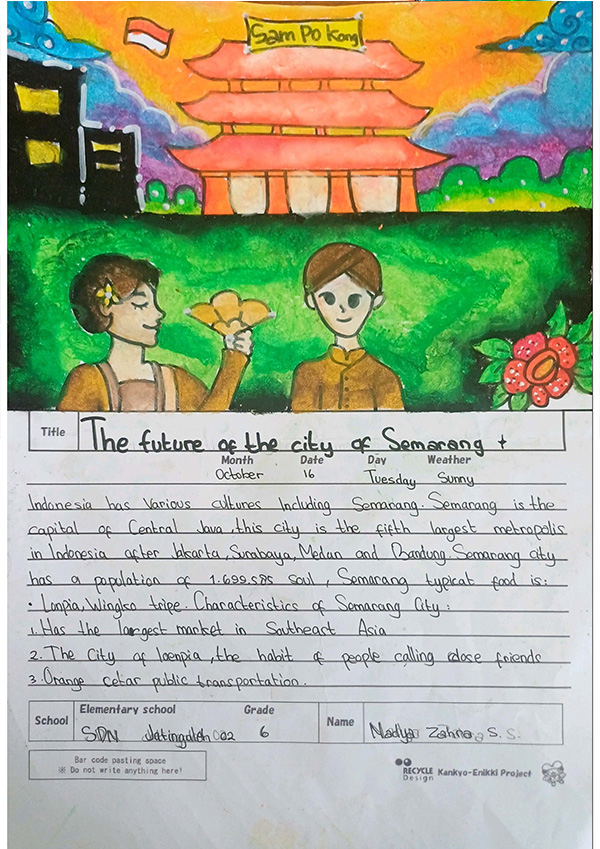 Sam Po Kong
Title The future of the city of Semarang
Month Date Day Weather
October 16 Tuesday Sunny
Indonesia has various cultures Including Semarang. Semarang is the
capital of Central Java, this city is the fifth largest metropolis
in Indonesia after Jakarta, Surabaya, Medan and Bandung. Semarang city
has a population of 1.699.585 soul, Semarang typicat food is:
• Lonpia, Wingko tripe. Characteristics of Semarang City:
1. Has the largest market in Southeast Asia
2. The City of loenpia, the habit of people calling close friends
3. Orange cetar public transportation.
School Elementary school Grade Name
SDN Jatingaleh 02 6 Nadya Zahna S. S.
Bar code pasting space
※ Do not write anything here!
RECYCLE Design Kankyo-Enikki Project